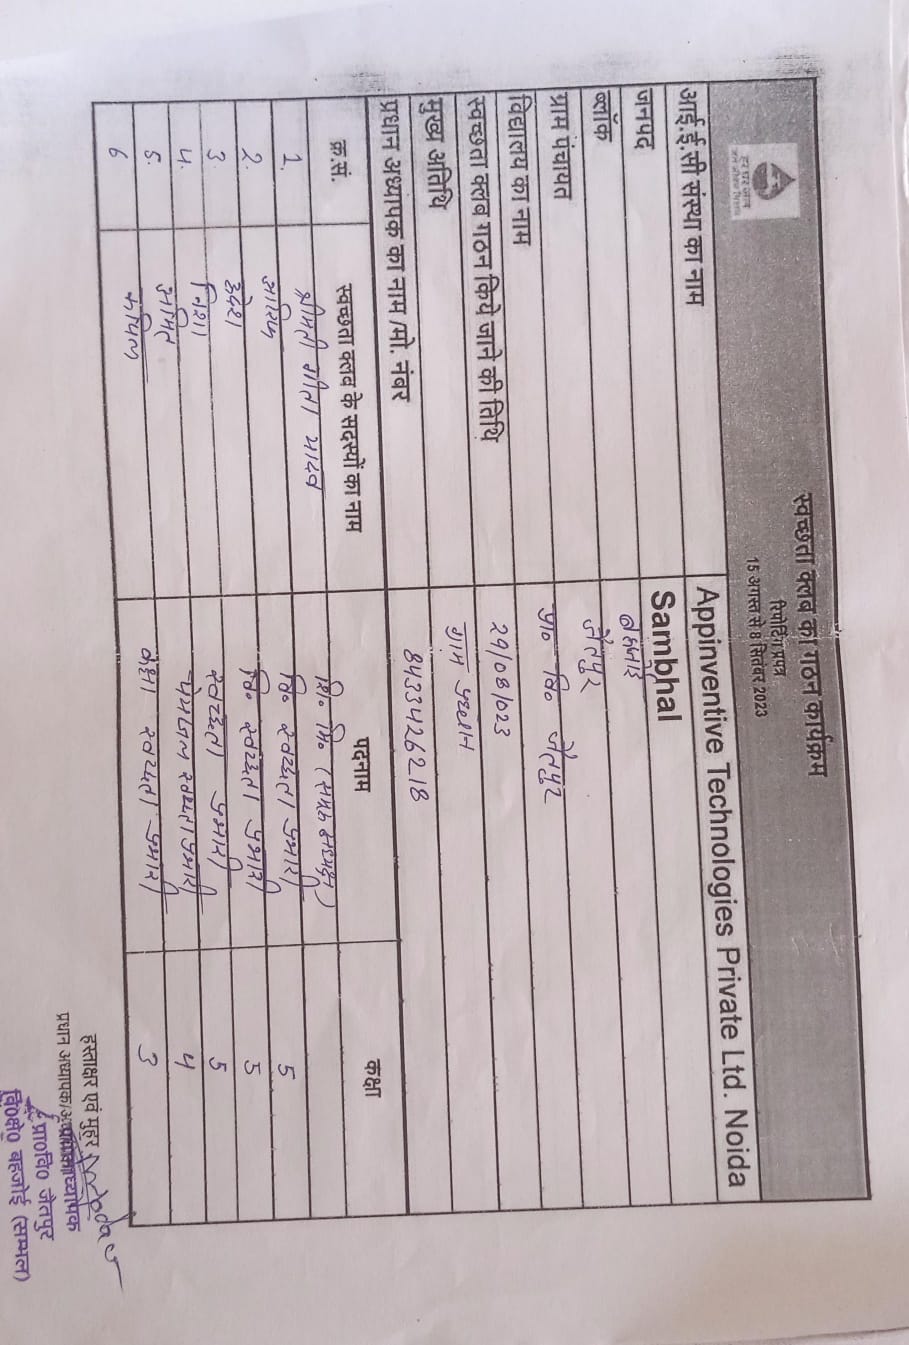 हर घर जल
जल जीवन मिशन
स्वच्छता क्लब का गठन कार्यक्रम
रिपोर्टिंग प्रपत्र
15 अगस्त से 8 सितंबर 2023
आई.ई.सी संस्था का नाम Appinventive Technologies Private Ltd. Noida
जनपद Sambhal
ब्लॉक बहजोई
ग्राम पंचायत जैतपुर
विद्यालय का नाम प्रा० वि० जैतपुर
स्वच्छता क्लब गठन किये जाने की तिथि 29/08/023
मुख्य अतिथि ग्राम प्रधान
प्रधान अध्यापक का नाम /मो. नंबर 8433426218
क्र.सं. स्वच्छता क्लब के सदस्यों का नाम पदनाम कक्षा
1. श्रीमती गीता यादव शि० मि०
2. वि० स्वच्छता प्रभारी 5
3. वि० स्वच्छता प्रभारी 5
4. निशा स्वच्छता प्रभारी 5
5. अमित पेयजल स्वच्छता प्रभारी 4
6 कपिल कक्षा स्वच्छता प्रभारी 3
हस्ताक्षर एवं मुहर
प्रधान अध्यापक/
प्रा०वि० जैतपुर
वि०क्षे० बहजोई (सम्भल)